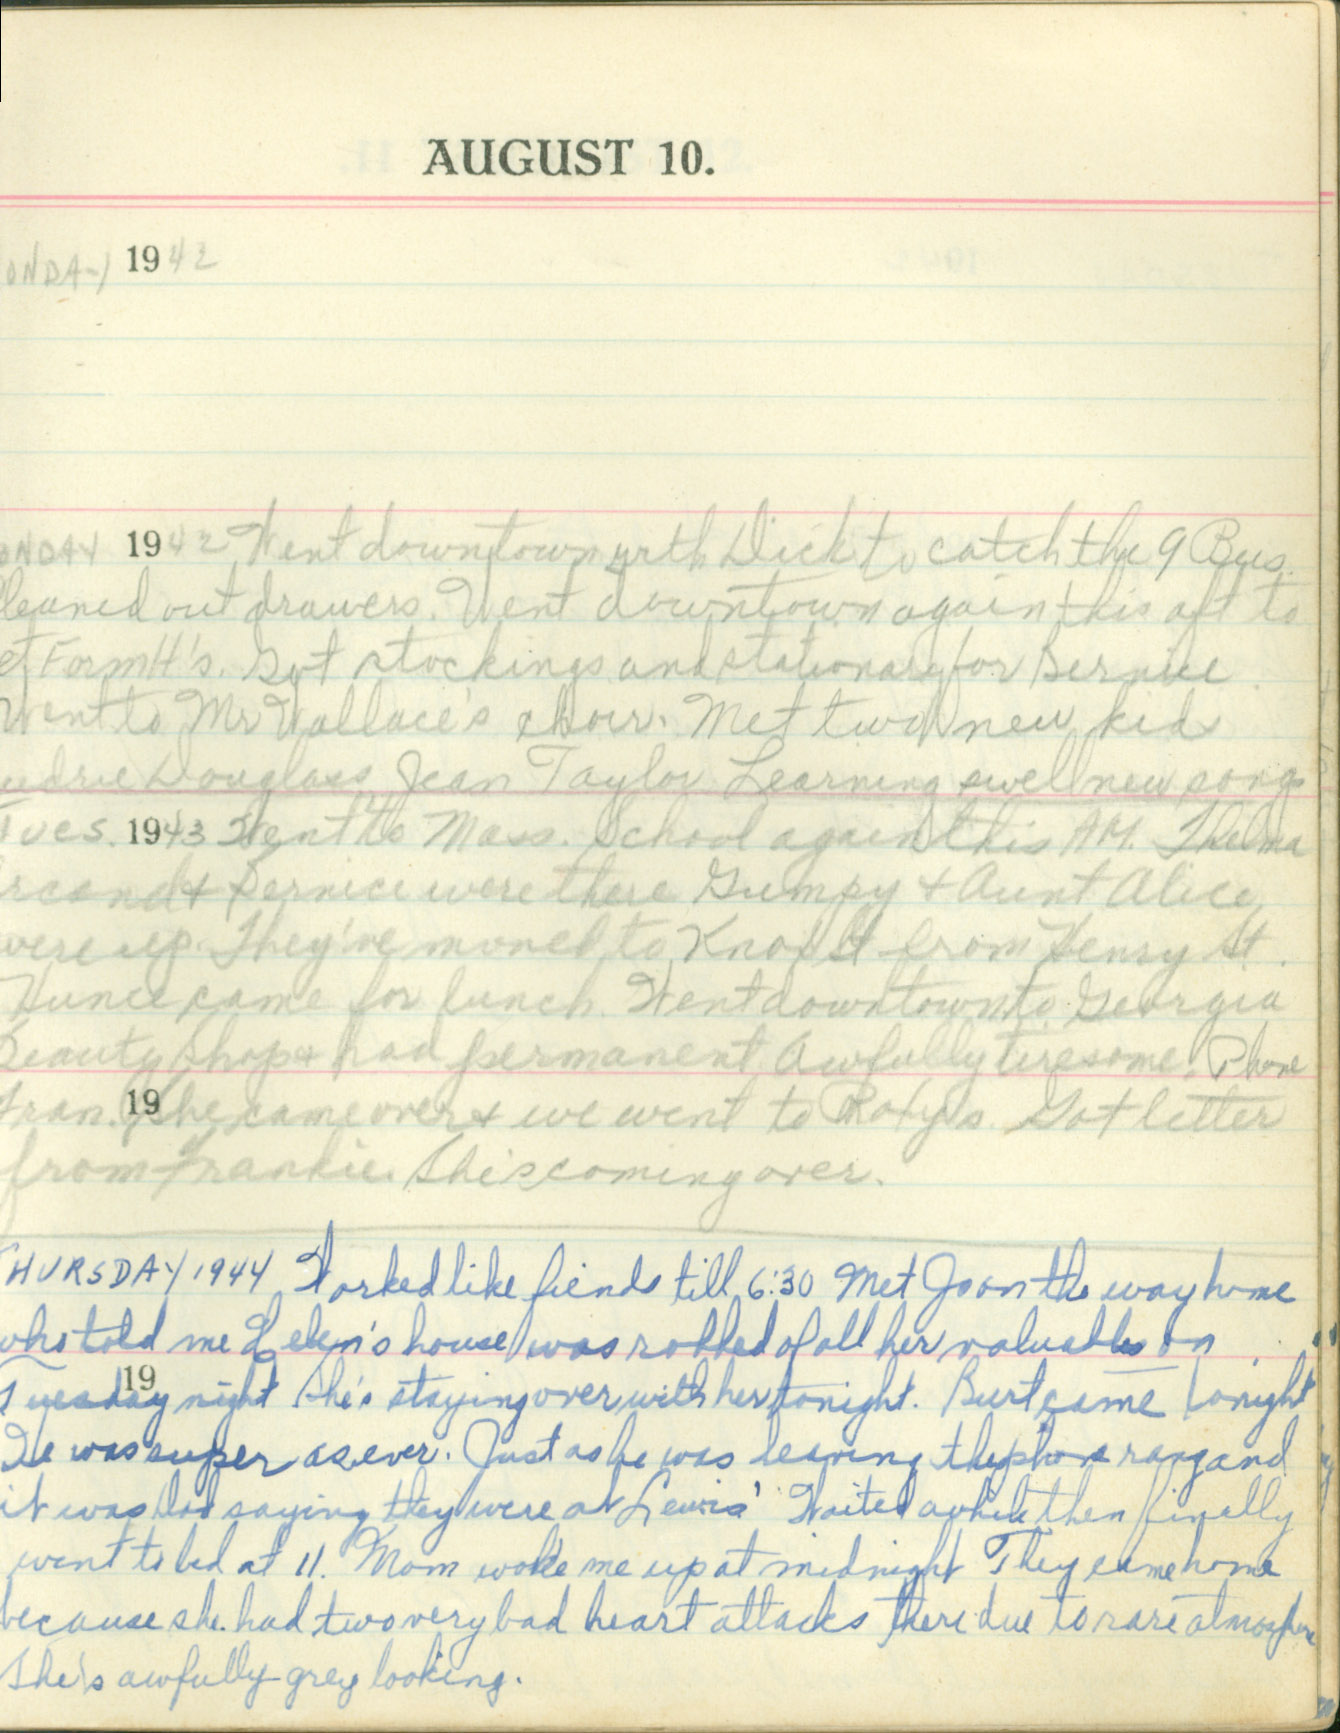 AUGUST 10.
ONDAY 1942
ONDAY 1942 Went downtown with Dick to catch the 9 Bus.
leaned out drawers. Went downtown again this aft to
et Farm H's. Got stockings and stationary for Bernice
Went to Mr Wallace's choir. Met two new kids
udrie Douglass Jean Taylor Learning swell new songs
Tues. 1943 Went to Mass. School again this AM. Thelma
& Bernice were there Gumpy & Aunt Alice
were up. They've moved to Knox St from Henry St.
came for lunch. Went downtown to Georgia
Beauty Shop & had permanent Awfully tiresome. Phone
Fran. 19 She came over & we went to Roxy's. Got letter
from Frankie. She's coming over.
HURSDAY 1944 Worked like fiends till 6:30 Met Jo on the way home
who told me Helen's house was robbed of all her valuables on
Tuesday 19 night She's staying over with her tonight. Burt came tonight
He was super as ever. Just as he was leaving the phone rang and
it was Dad saying they were at Lewis' Waited awhile then finally
went to bed at 11. Mom woke me up at midnight They came home
because she had two very bad heart attacks there due to rare atmosphere
She's awfully grey looking.